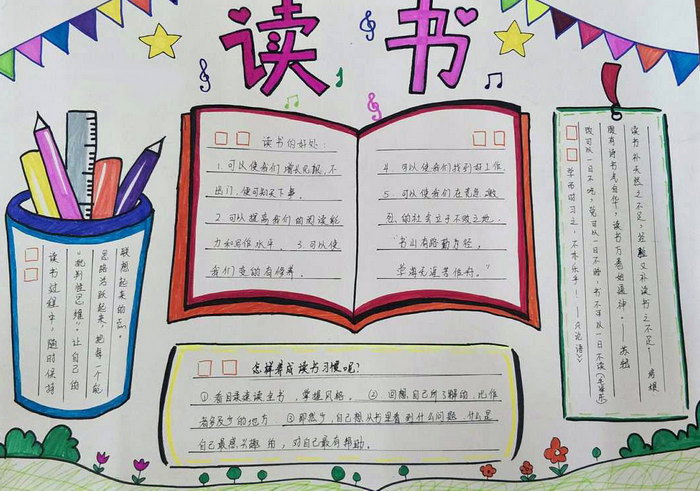 读书
读书的好处:
1.可以使我们增长见识,不
出门,便可知天下事。
2.可以提高我们的阅读能
力和写作水平。3.可以使
我们变的有修养。
4.可以使我们找到好工作。
5.可以使我们在竞争激
烈的社会立于不败之地。
“书山有路勤为径,
学海无涯苦作舟。”
读书过程中,随时保持
“批判性思维”。让自己的
思路活跃起来,把每一个能
联想起来的点。
学而时习之,不亦乐乎!——《论语》
饭可以一日不吃,觉可以一日不睡,书不可以一日不读(毛泽东)
腹有诗书气自华,读书万卷始通神。——苏轼
读书补天然之不足,经验又补读书之不足。——培根
怎样养成读书习惯呢?
①看目录速读全书,掌握风格。②回想自己所了解的,比作
者多及少的地方。③ 自己想从书里看到什么问题,什么是
自己最感兴趣的,对自己最有帮助。